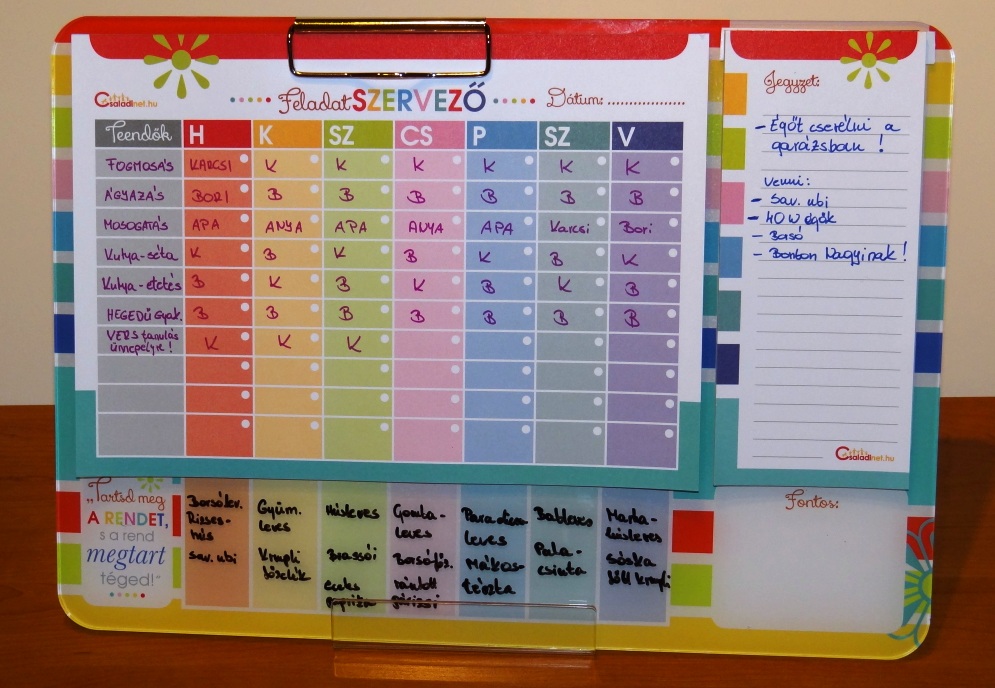 Családinet.hu
Feladat SZERVEZŐ
Dátum: ....................
Teendők H K SZ CS P SZ V
FOGMOSÁS KARCSI K K K K K K
ÁGYAZÁS BORI B B B B B B
MOSOGATÁS APA ANYA APA ANYA APA Karcsi Bori
Kutya-séta K B K B K B K
Kutya-etetés B K B K B K B
HEGEDŰ gyak. B B B B B B B
VERS tanulás K K K
ünnepélyre!
Jegyzet:
- Égőt cserélni a
garázsban !
Venni:
- Sav. ubi
- 40 W égők
- Borsó
- Bonbon Nagyinak!
Családinet.hu
„Tartsd meg
A RENDET,
s a rend
megtart
téged!"
Borsólev.
Rizses-
hús
sav. ubi
Gyüm.
leves
Krumpli
főzelék
Húsleves
Brassói
Gomba-
leves
Borsófőz.
rántott
Paradicsom
leves
Mákos-
tészta
Bableves
Pala-
csinta
Marha-
húsleves
Sóska
főtt krumpli
Fontos: